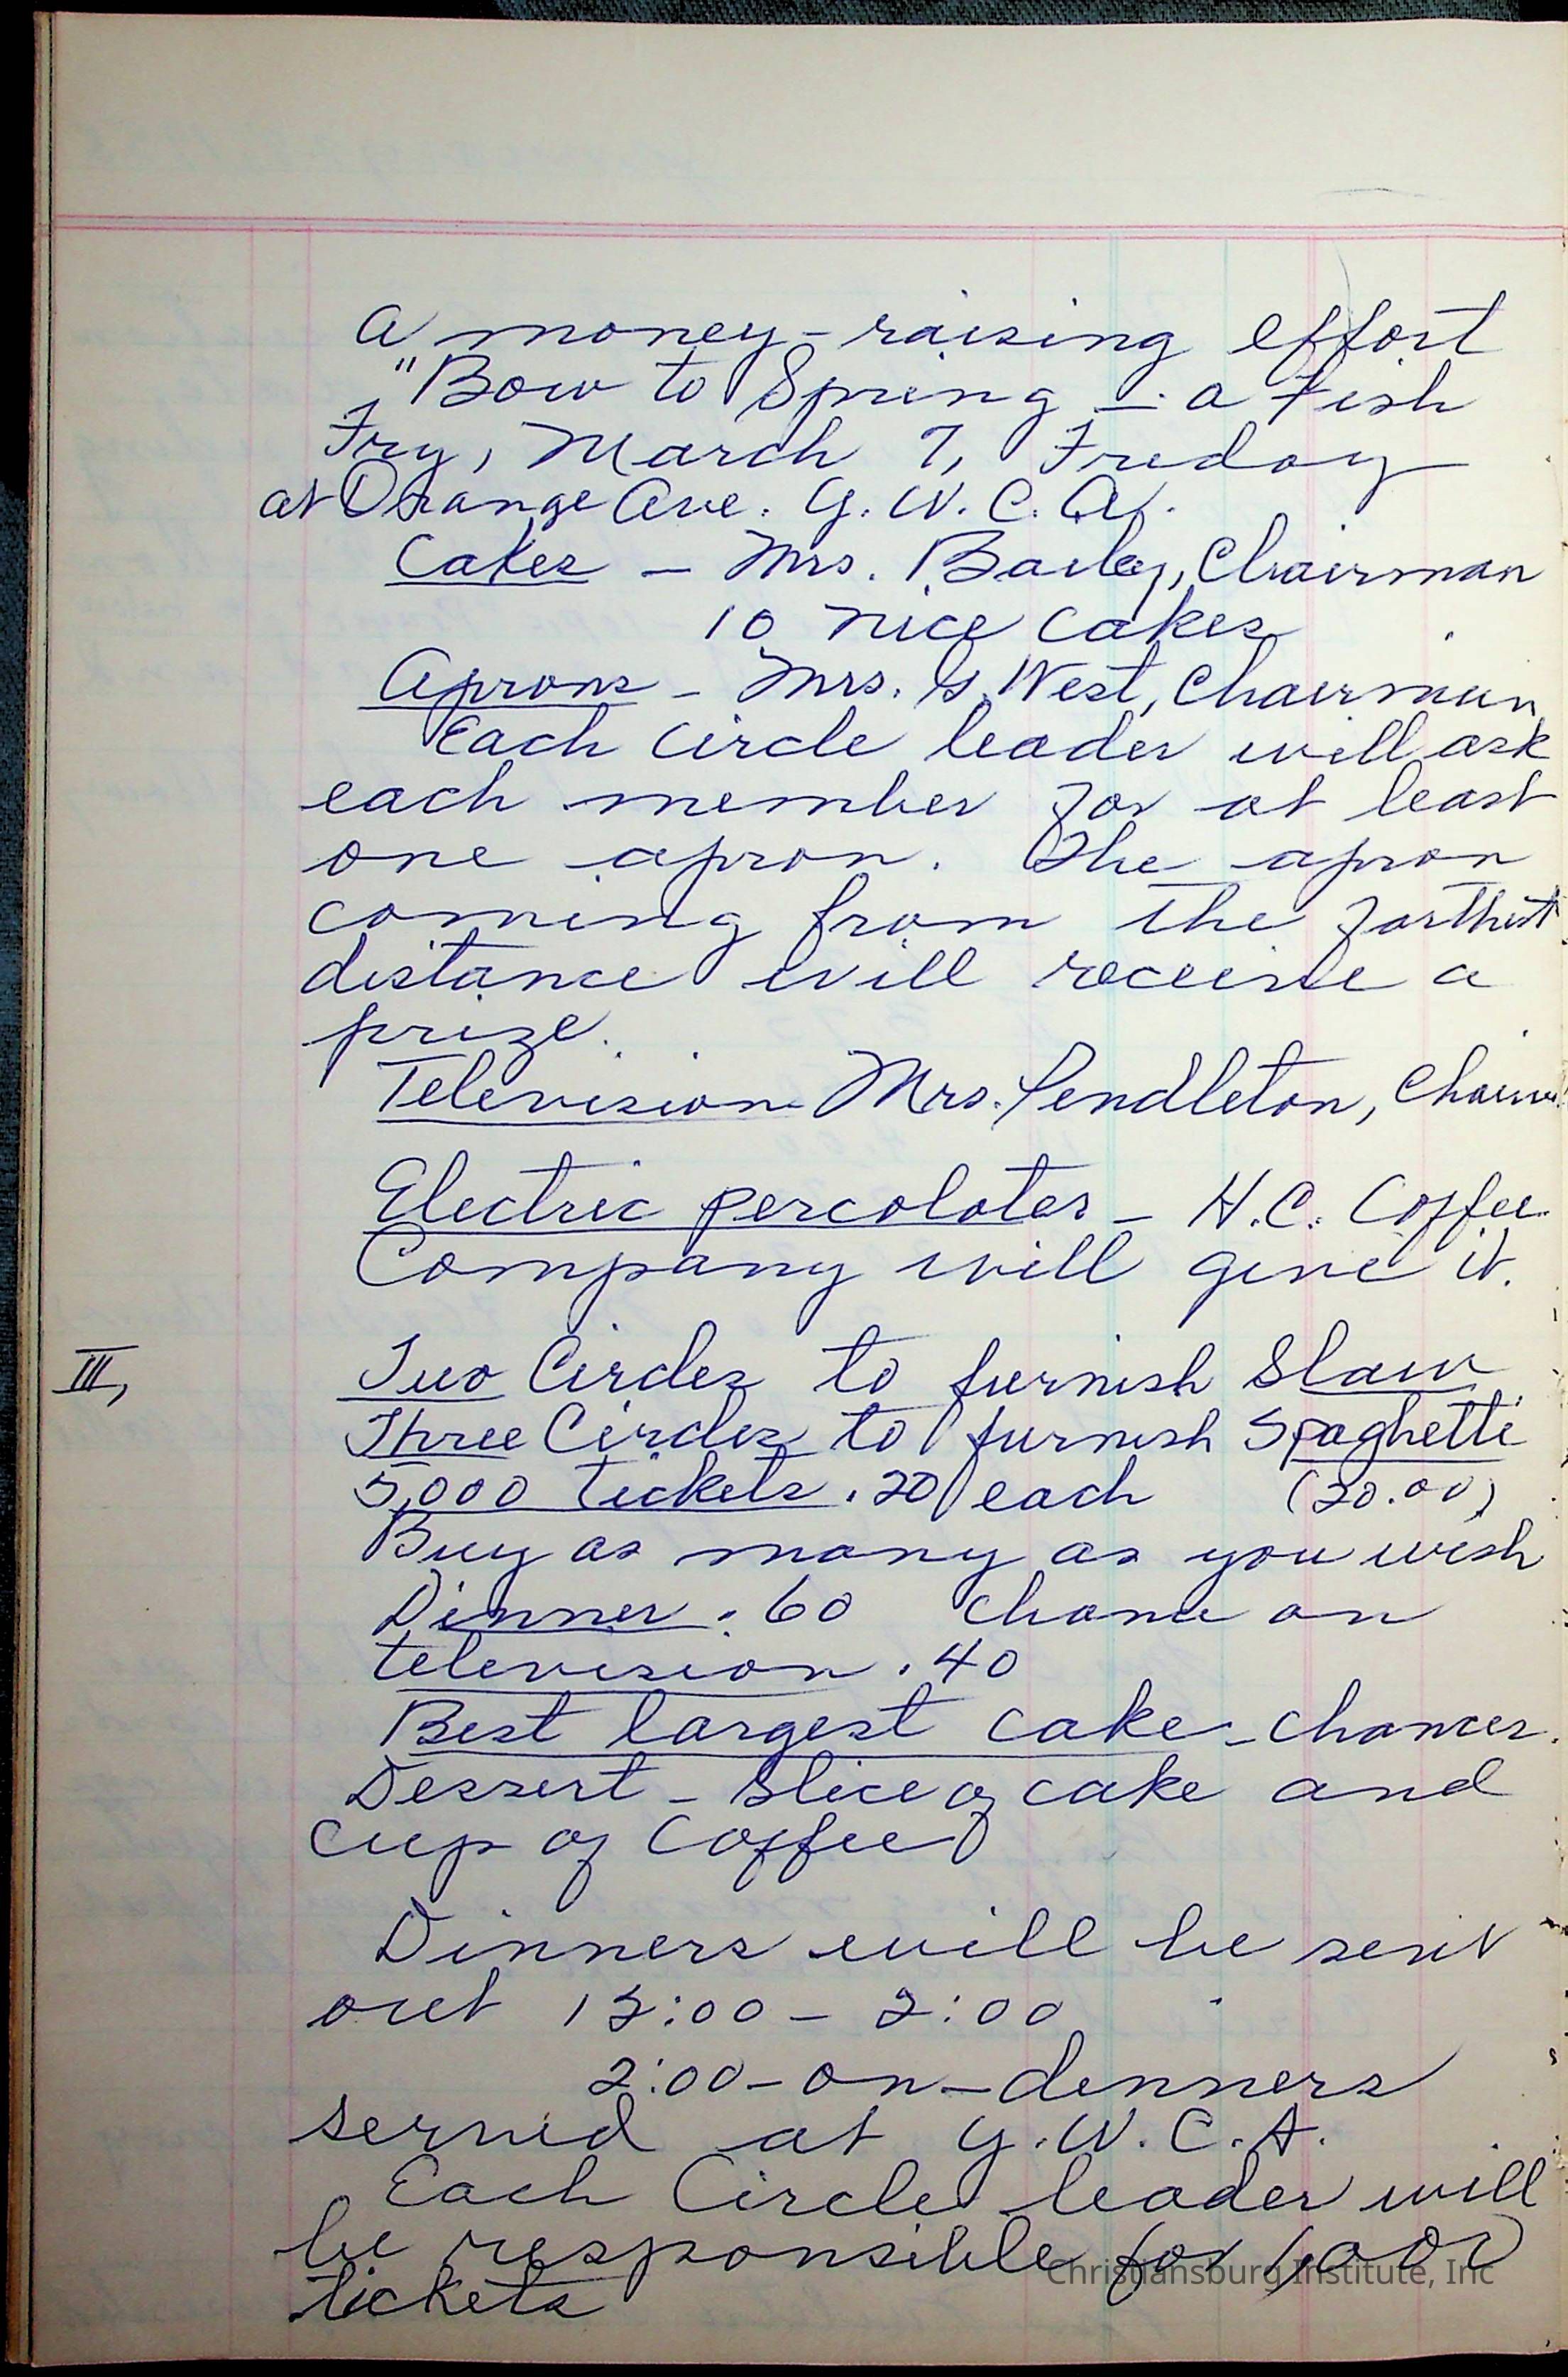 A money-raising effort
"Bow to Spring - a Fish
Fry, March 7, Friday
at Orange Ave. Y.W.C.A.
Cakes - Mrs. Bailey, Chairman
10 nice cakes
Aprons - Mrs. G. West, Chairman
Each Circle leader will ask
each member for at least
one apron. The apron
coming from the farthest
distance will receive a
prize.
Television - Mrs. Pendleton, Chairm.
Electric percolater - H.C. Coffee
Company will give it.
III, Two Circles to furnish Slaw
Three Circles to furnish Spaghetti
5,000 tickets .20 each (20.00)
Buy as many as you wish
Dinner .60 chance on
television .40
Best largest cake - chances.
Dessert - Slice of cake and
cup of Coffee
Dinners will be sent
out 12:00 - 2:00
2:00 - on - dinners
served at Y.W.C.A.
Each Circle leader will
be responsible for 1,000
tickets
Christiansburg Institute, Inc